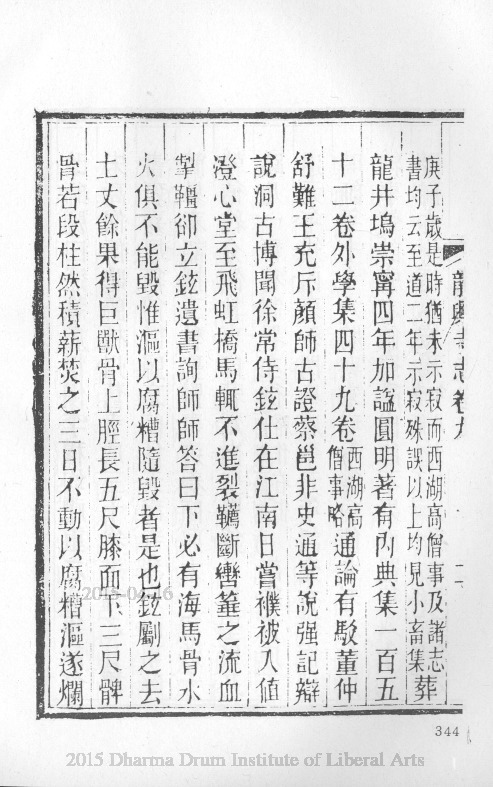 龍興寺志卷九
二
庚子歲是時猶未示寂而西湖高僧事及諸志
書均云至道二年示寂殊誤以上均見小畜集葬
龍井塢崇寧四年加諡圓明著有內典集一百五
十二卷外學集四十九卷西湖高僧事略通論有駁董仲
舒難王充斥顏師古證蔡邕非史通等說强記辯
說洞古博聞徐常侍鉉仕在江南日嘗襆被入值
澄心堂至飛虹橋馬輒不進裂鞴斷轡箠之流血
掣韁卻立鉉遺書詢師師答曰下必有海馬骨水
火俱不能毀惟漚以腐糟隨毀者是也鉉斸之去
土丈餘果得巨獸骨上脛長五尺膝而下三尺髀
骨若段柱然積薪焚之三日不動以腐糟漚遂爛
344
2015 Dharma Drum Institute of Liberal Arts